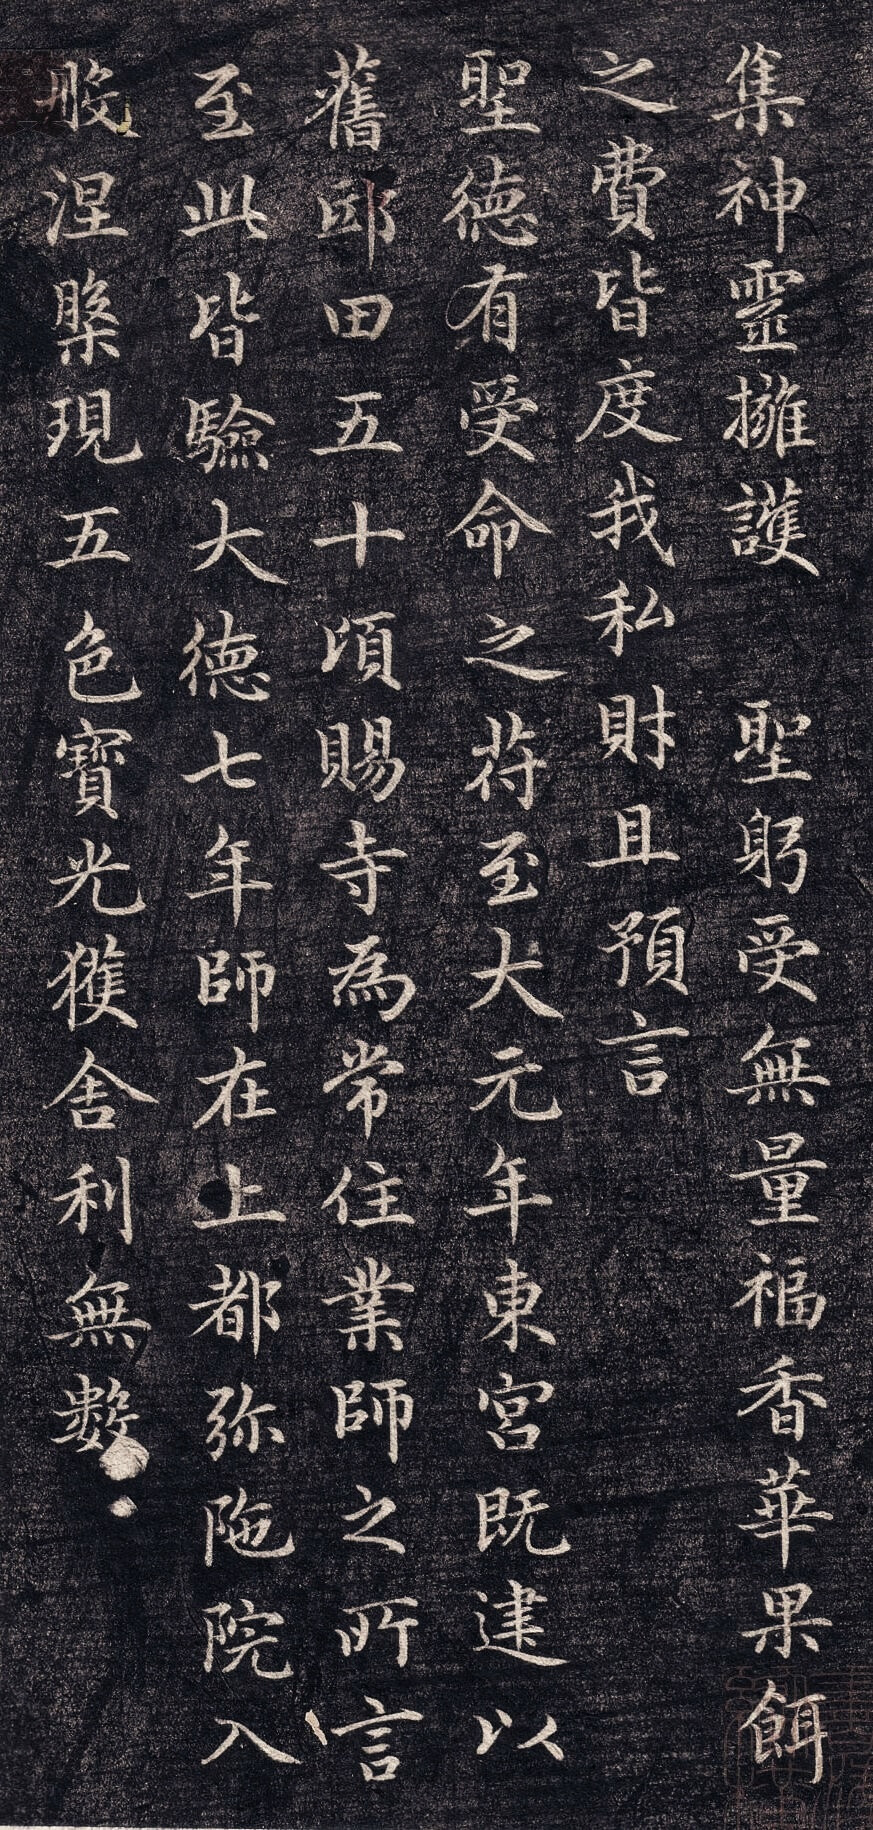 集神靈擁護 聖躬受無量福香華果餌
之費皆度我私財且預言
聖德有受命之苻至大元年東宮既建以
舊邸田五十頃賜寺為常住業師之所言
至此皆驗大德七年師在上都弥陁院入
般涅槃現五色寶光獲舍利無數